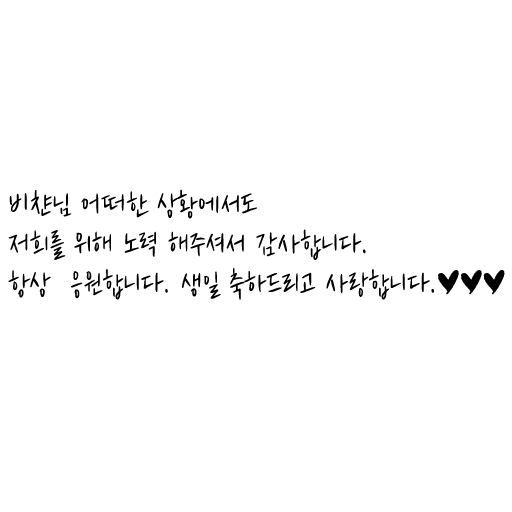 비챤님 어떠한 상황에서도
저희를 위해 노력 해주셔서 감사합니다.
항상 응원합니다. 생일 축하드리고 사랑합니다.♥♥♥